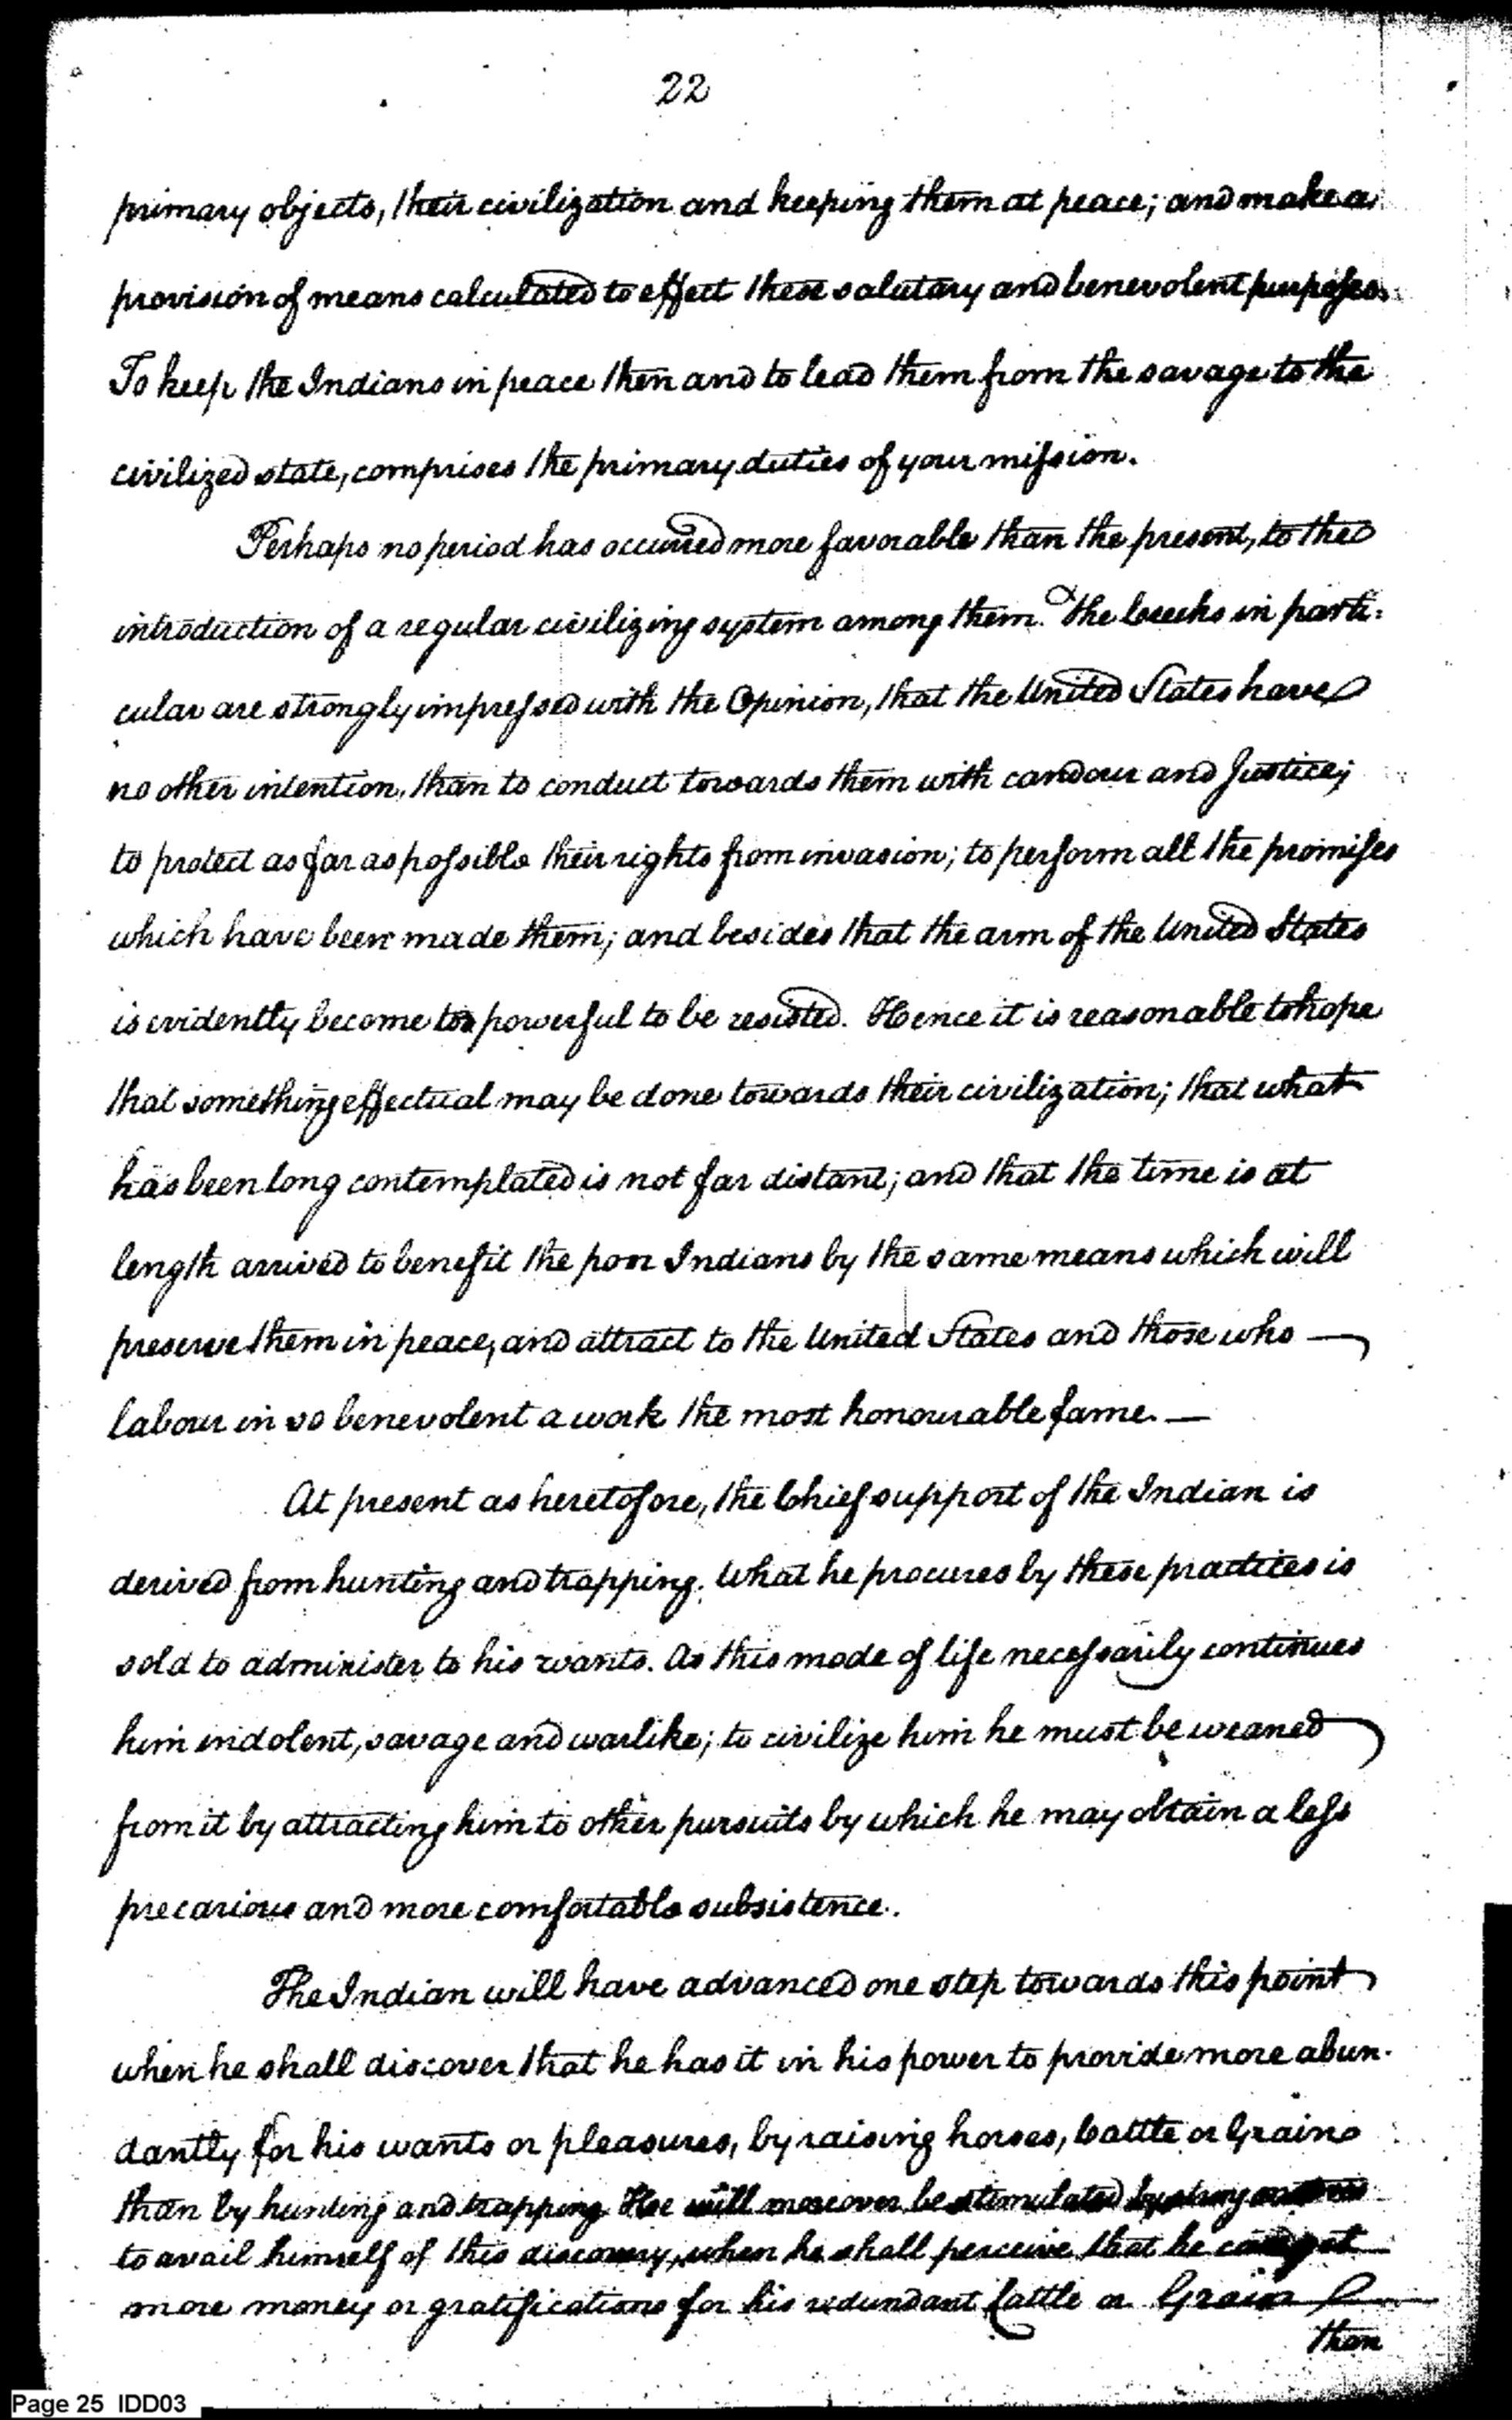 22
primary objects, their civilization and keeping them at peace; and make a
provision of means calculated to effect these salutary and benevolent purposes.
To keep the Indians in peace then and to lead them from the savage to the
civilized state, comprises the primary duties of your mission.
Perhaps no period has occurred more favorable than the present, to the
introduction of a regular civilizing system among them. The Creeks in parti:
cular are strongly impressed with the Opinion, that the United States have
no other intention, than to conduct towards them with candour and Justice;
to protect as far as possible their rights from invasion; to perform all the promises
which have been made them; and besides that the arm of the United States
is evidently become too powerful to be resisted. Hence it is reasonable to hope
that something effectual may be done towards their civilization; that what
has been long contemplated is not far distant; and that the time is at
length arrived to benefit the poor Indians by the same means which will
preserve them in peace, and attract to the United States and those who —
labour in so benevolent a work the most honourable fame. —
At present as heretofore, the Chief support of the Indian is
derived from hunting and trapping. What he procures by these practices is
sold to administer to his wants. As this mode of life necessarily continues
him indolent, savage and warlike; to civilize him he must be weaned
from it by attracting him to other pursuits by which he may obtain a less
precarious and more comfortable subsistence.
The Indian will have advanced one step towards this point
when he shall discover that he has it in his power to provide more abun-
dantly for his wants or pleasures, by raising horses, Cattle or Grain
than by hunting and trapping. He will moreover be stimulated by
to avail himself of this discovery, when he shall perceive that he can get
more money or gratifications for his redundant Cattle or Grain
than
Page 25 IDD03